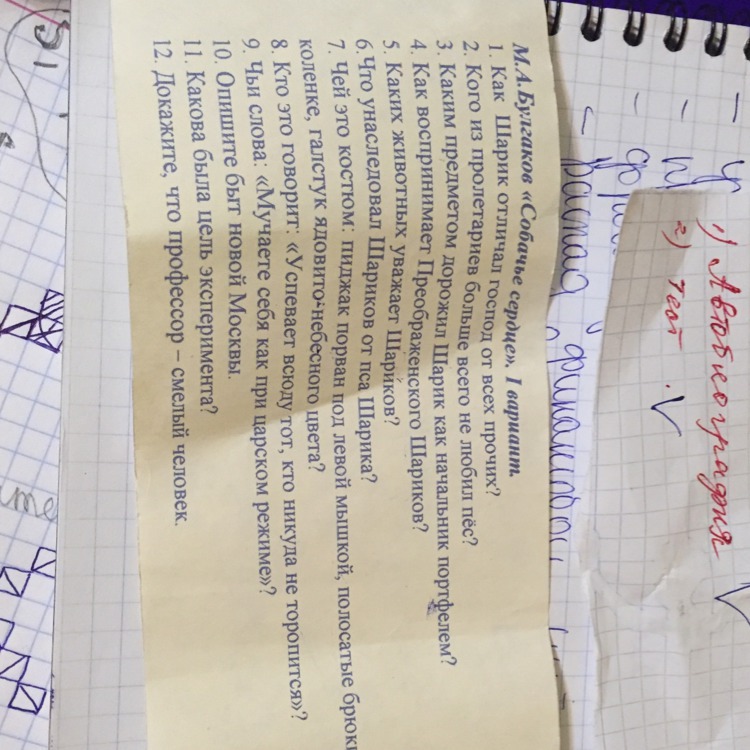 М.А.Булгаков «Собачье сердце». I вариант.
1. Как Шарик отличал господ от всех прочих?
2. Кого из пролетариев больше всего не любил пёс?
3. Каким предметом дорожил Шарик как начальник портфелем?
4. Как воспринимает Преображенского Шариков?
5. Каких животных уважает Шариков?
6. Что унаследовал Шариков от пса Шарика?
7. Чей это костюм: пиджак порван под левой мышкой, полосатые брюки
коленке, галстук ядовито-небесного цвета?
8. Кто это говорит: «Успевает всюду тот, кто никуда не торопится»?
9. Чьи слова: «Мучаете себя как при царском режиме»?
10. Опишите быт новой Москвы.
11. Какова была цель эксперимента?
12. Докажите, что профессор – смелый человек.
1) Автобиография
2) тест